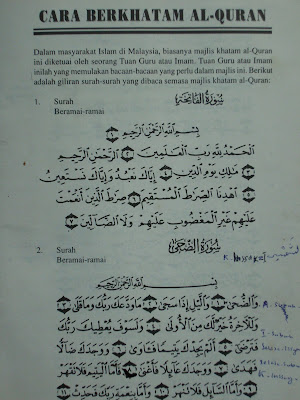 CARA BERKHATAM AL-QURAN
Dalam masyarakat Islam di Malaysia, biasanya majlis khatam al-Quran
ini diketuai oleh seorang Tuan Guru atau Imam. Tuan Guru atau Imam
inilah yang memulakan bacaan-bacaan yang perlu dalam majlis ini. Berikut
adalah giliran surah-surah yang dibaca semasa majlis khatam al-Quran:
1. Surah سُورَةُ الْفَاتِحَةِ
Beramai-ramai
بِسْمِ اللَّهِ الرَّحْمَٰنِ الرَّحِيمِ
الْحَمْدُ لِلَّهِ رَبِّ الْعَالَمِينَ ٢ الرَّحْمَٰنِ الرَّحِيمِ
٣ مَالِكِ يَوْمِ الدِّينِ ٤ إِيَّاكَ نَعْبُدُ وَإِيَّاكَ نَسْتَعِينُ
٥ اهْدِنَا الصِّرَاطَ الْمُسْتَقِيمَ ٦ صِرَاطَ الَّذِينَ أَنْعَمْتَ
عَلَيْهِمْ غَيْرِ الْمَغْضُوبِ عَلَيْهِمْ وَلَا الضَّالِّينَ ٧
2. Surah سُورَةُ الضُّحَىٰ
Beramai-ramai
بِسْمِ اللَّهِ الرَّحْمَٰنِ الرَّحِيمِ
وَالضُّحَىٰ ١ وَاللَّيْلِ إِذَا سَجَىٰ ٢ مَا وَدَّعَكَ رَبُّكَ وَمَا قَلَىٰ ٣
وَلَلْآخِرَةُ خَيْرٌ لَّكَ مِنَ الْأُولَىٰ ٤ وَلَسَوْفَ يُعْطِيكَ رَبُّكَ
فَتَرْضَىٰ ٥ أَلَمْ يَجِدْكَ يَتِيمًا فَآوَىٰ ٦ وَوَجَدَكَ ضَالًّا
فَهَدَىٰ ٧ وَوَجَدَكَ عَائِلًا فَأَغْنَىٰ ٨ فَأَمَّا الْيَتِيمَ فَلَا تَقْهَرْ
٩ وَأَمَّا السَّائِلَ فَلَا تَنْهَرْ ١٠ وَأَمَّا بِنِعْمَةِ رَبِّكَ فَحَدِّثْ ١١